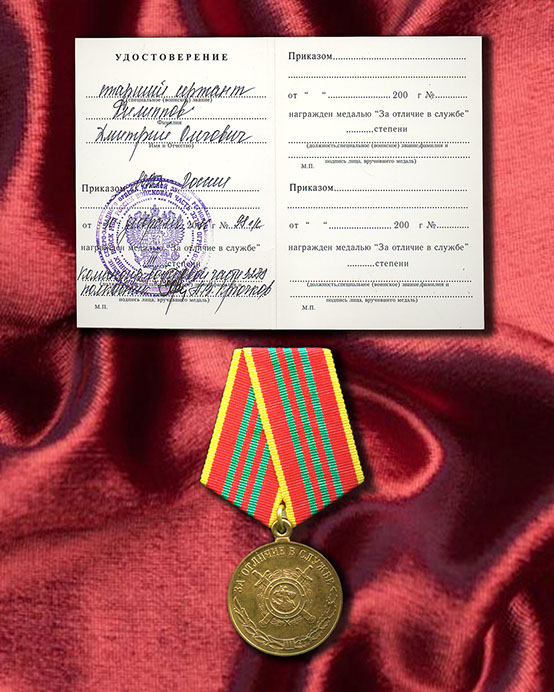 УДОСТОВЕРЕНИЕ
старший сержант
(специальное (воинское) звание)
Филиппов
Фамилия
Дмитрий Олегович
Имя и Отчество)
Приказом России
от " " 200 г №
награжден медалью "За отличие в службе"
III степени
полковник
подпись лица, вручившего медаль)
М.П.
Приказом
от " " 200 г №
награжден медалью "За отличие в службе"
степени
(должность,специальное (воинское) звание,фамилия и
подпись лица, вручившего медаль)
М.П.
Приказом
от " " 200 г №
награжден медалью "За отличие в службе"
степени
(должность,специальное (воинское) звание,фамилия и
подпись лица, вручившего медаль)
М.П.
ЗА ОТЛИЧИЕ В СЛУЖБЕ
III